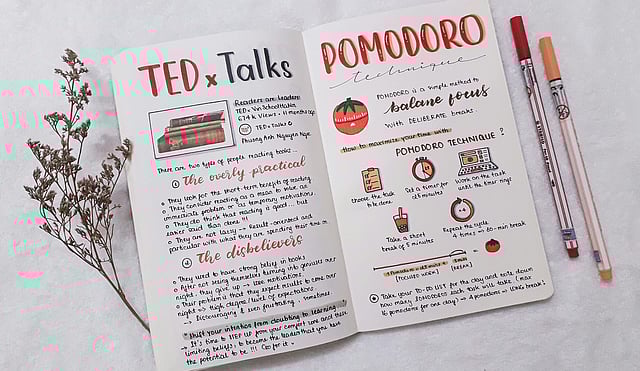 TED x Talks
Readers are leaders
TEDx VinSchoolHaNoi
674 K views • 11 months ago
TEDx Talks
Phuong Anh Nguyen Nga
There are two types of people reading books...
① The overly-practical
They look for the short-term benefits of reading
They consider reading as a mean to solve an
immediate problem or as temporary motivations.
They do think that reading is good... but
easier said than done !!!
They are not lazy → Result-oriented and
particular with what they are spending their time on
② The disbelievers
They used to have strong belief in books
After not seeing themselves turning into geniuses over
night, they give up → lose motivations.
Their problem is that they expect results to come over
night → High degree/level of expectations
→ Discouraging & even frustrating sometimes
Shift your intention from doubting to learning
→ It's time to step up from your comfort zone and these
limiting beliefs, to become the leader that you have
the potential to be !!! Go for it
POMODORO
technique
POMODORO is a simple method to
balance focus
with DELIBERATE breaks
How to maximize your time with
POMODORO TECHNIQUE ?
choose the task
to be done
Set a timer for
25 minutes
Work on the task
until the timer rings
Take a short
break of 5 minutes
Repeat the cycle
4 times → 20-min break
1 Pomodoro = 25 mins + 5 mins
(FOCUSED WORK) (BREAK)
Take your TO-DO LIST for the day and write down
how many POMODOROS each task will take. (max
16 pomodoro for one day) → 4 pomodoros → LONG break